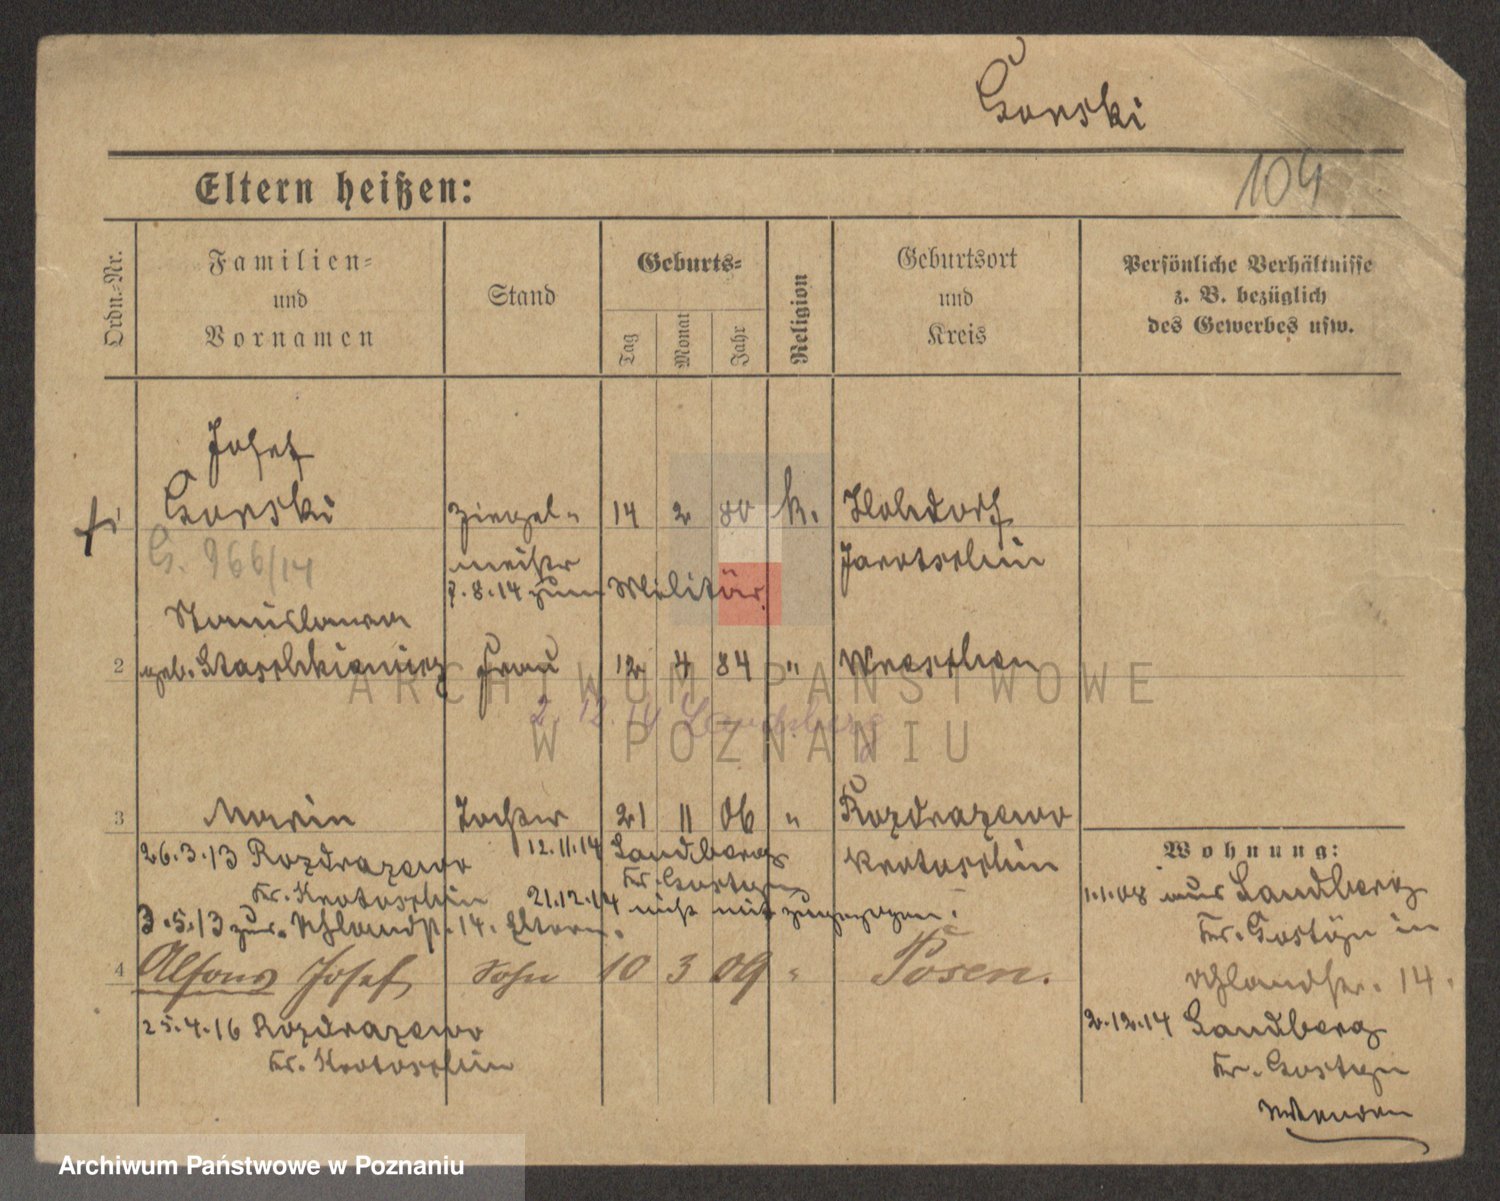 Gorski
104
Eltern heißen:
Ordn.-Nr.
Familien-
und
Vornamen
Stand
Geburts-
Tag
Monat
Jahr
Religion
Geburtsort
und
Kreis
Persönliche Verhältnisse
z. B. bezüglich
des Gewerbes usw.
Josef
Gorski Ziegel- 14 2 80 k. Hohdorf
G. 966/14 meister Jarotschin
7.8.14 zum Militär.
Stanislawa
2 geb. Frau 12 4 84 " Wreschen
2.12.14 Landsberg
3 Marie Tochter 21 11 06 " Rozdrazewo
26.3.13 Rozdrazewo 12.11.14 Landberg Krotoschin
Kr. Krotoschin Kr. Gostyn
21.12.14 nicht mit zugezogen.
3.5.13 zur. Uhlandstr. 14. Eltern.
4 Alfons Josef Sohn 10 3 09 " Posen.
25.4.16 Rozdrazewo
Kr. Krotoschin
Wohnung:
1.1.08 aus Landberg
Kr. Gostyn in
Uhlandstr. 14.
2.12.14 Landberg
Kr. Gostyn
ARCHIWUM PAŃSTWOWE
W POZNANIU
Archiwum Państwowe w Poznaniu